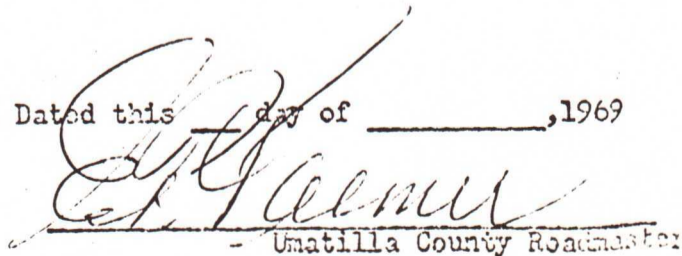 Dated this ___ day of __________,1969
- Umatilla County Roadmaster